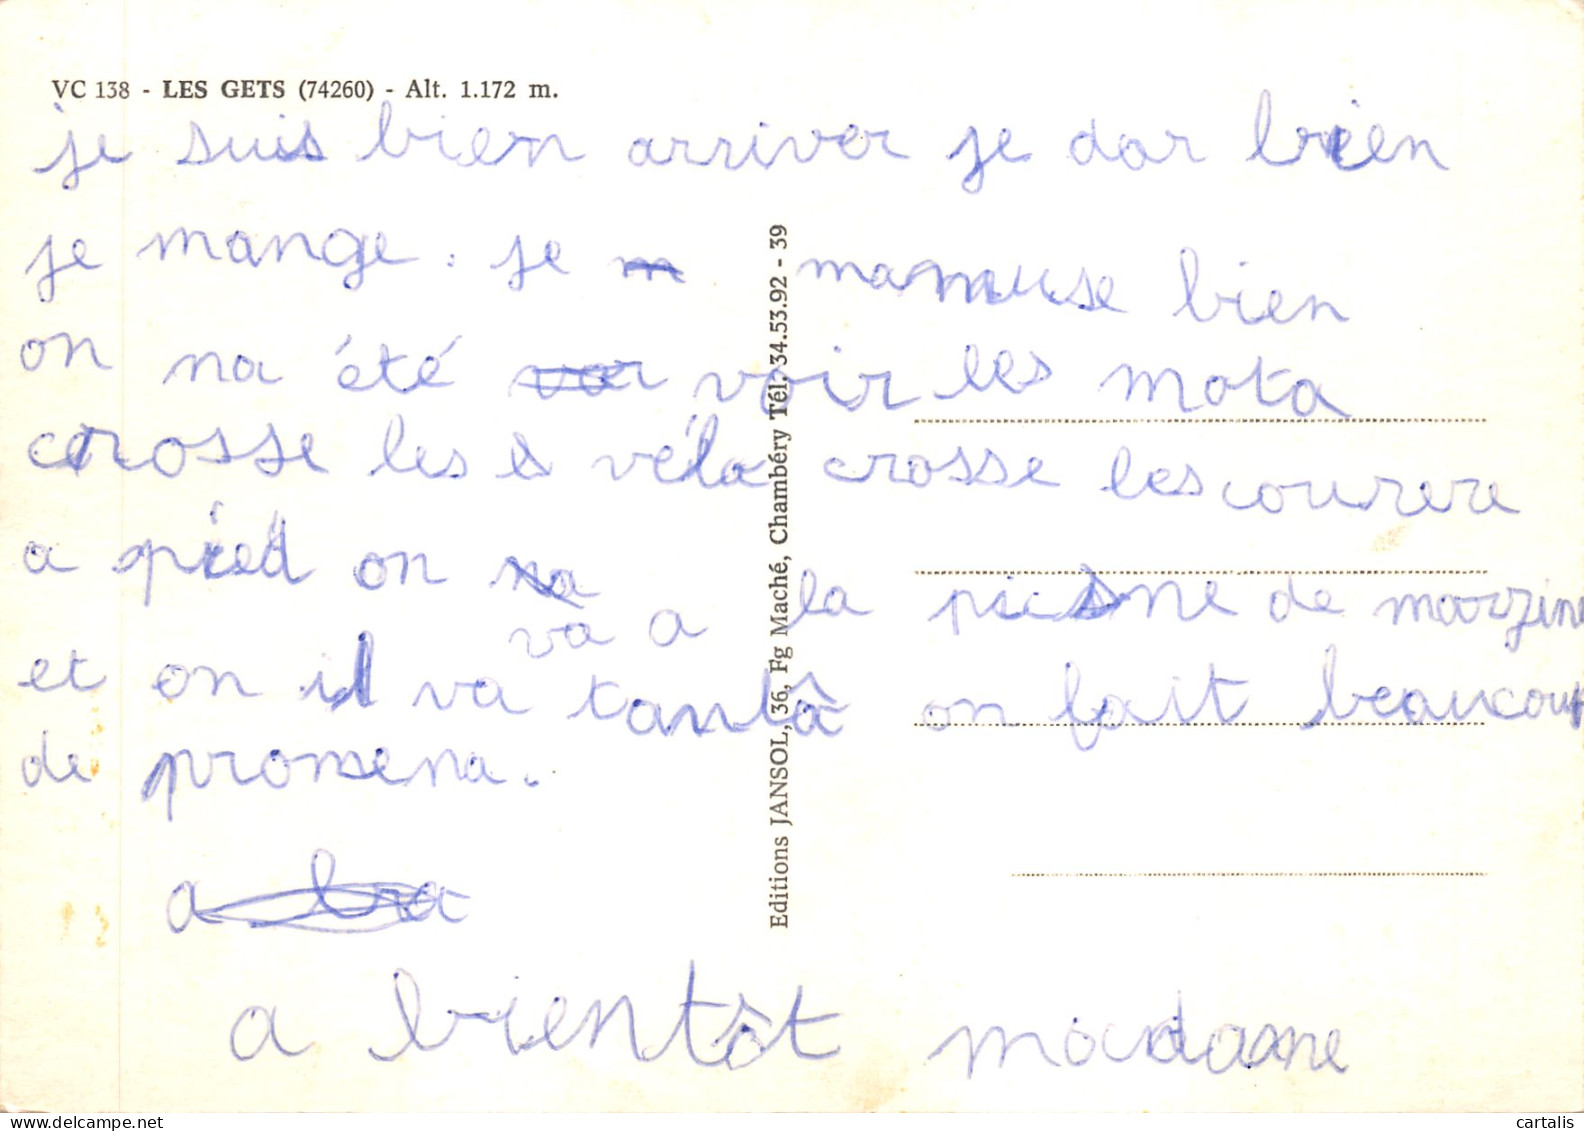 VC 138 - LES GETS (74260) - Alt. 1.172 m.
je suis bien arriver je dor bien
je mange . je mamuse bien
on na été voir les mota
crosse les vélo crosse les courere
a pied on
va a la picsne de morzine
et on il va tantâ on fait beaucoup
de promena.
a bientôt madame
Editions JANSOL, 36, Fg Maché, Chambéry Tél. 34.53.92 - 39
cartalis